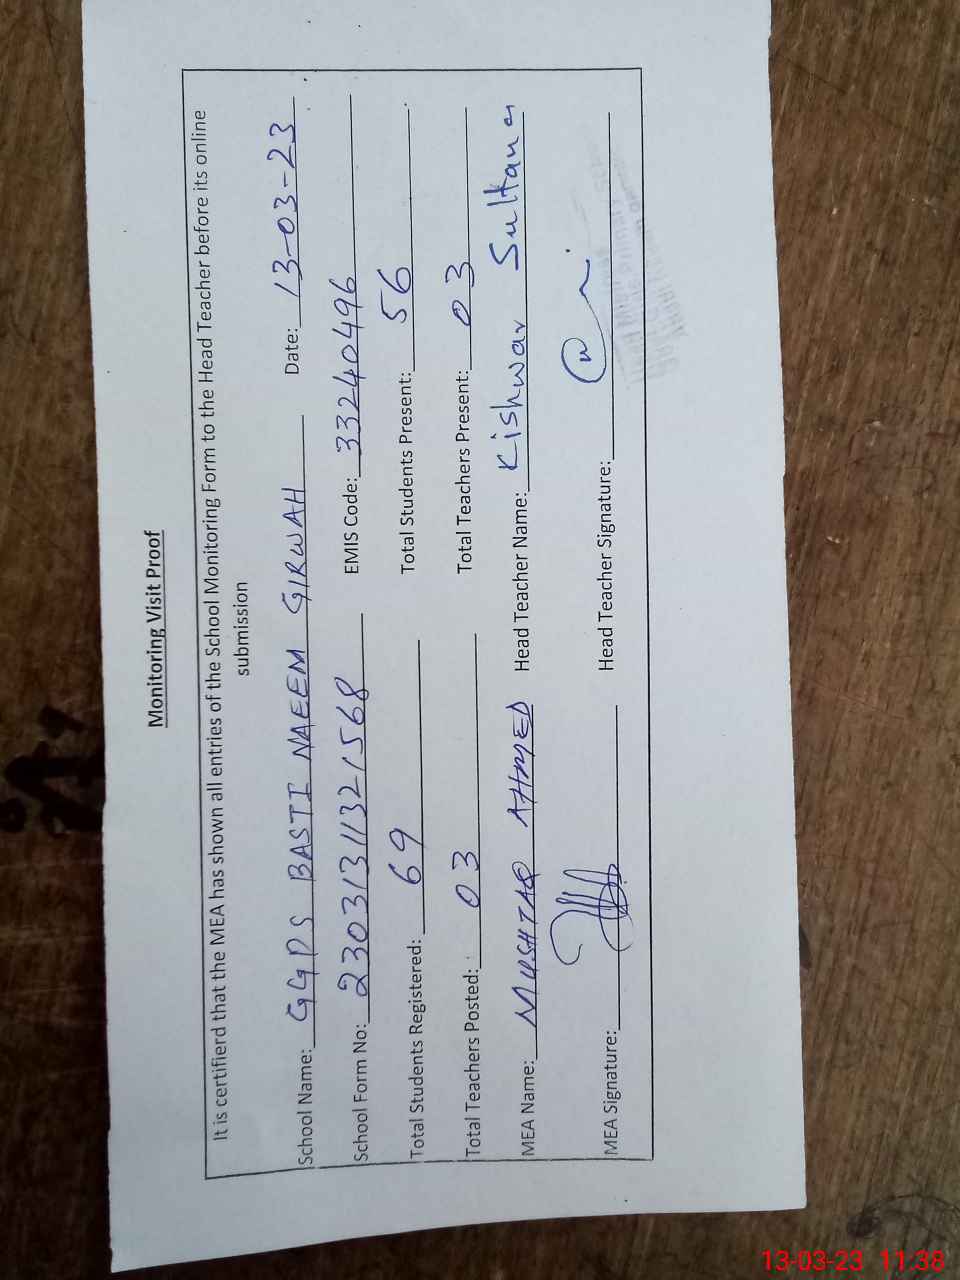 Monitoring Visit Proof
It is certifierd that the MEA has shown all entries of the School Monitoring Form to the Head Teacher before its online
submission
School Name: GGPS BASTI NAEEM GIRWAH Date: 13-03-23
School Form No: 23031311321568 EMIS Code: 33240496
Total Students Registered: 69 Total Students Present: 56
Total Teachers Posted: 03 Total Teachers Present: 03
MEA Name: MUSHTAQ AHMED Head Teacher Name: Kishwar Sultana
MEA Signature: Head Teacher Signature:
13-03-23 11:38